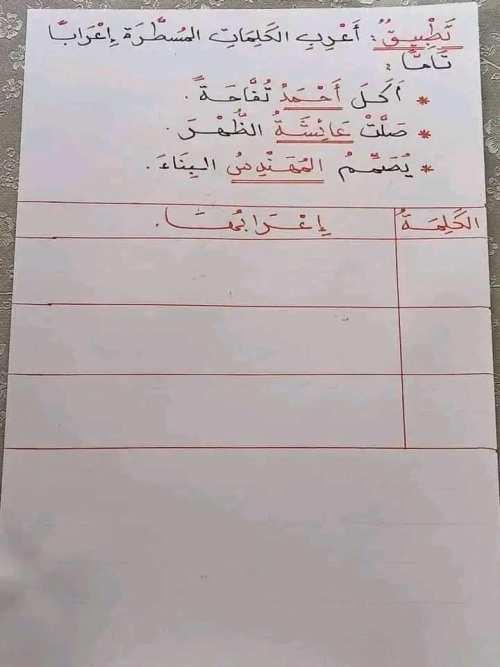 تَطْبِيقٌ : أَعْرِبِ الكَلِمَاتِ المُسَطَّرَة إِعْرَابًا
تَامًّا :
* أَكَلَ أَحْمَدُ تُفَّاحَةً .
* صَلَّتْ عَائِشَةُ الظُّهْرَ .
* يُصَمِّمُ المُهَنْدِسُ البِنَاءَ .
الكَلِمَةُ إِعْرَابُهَا .